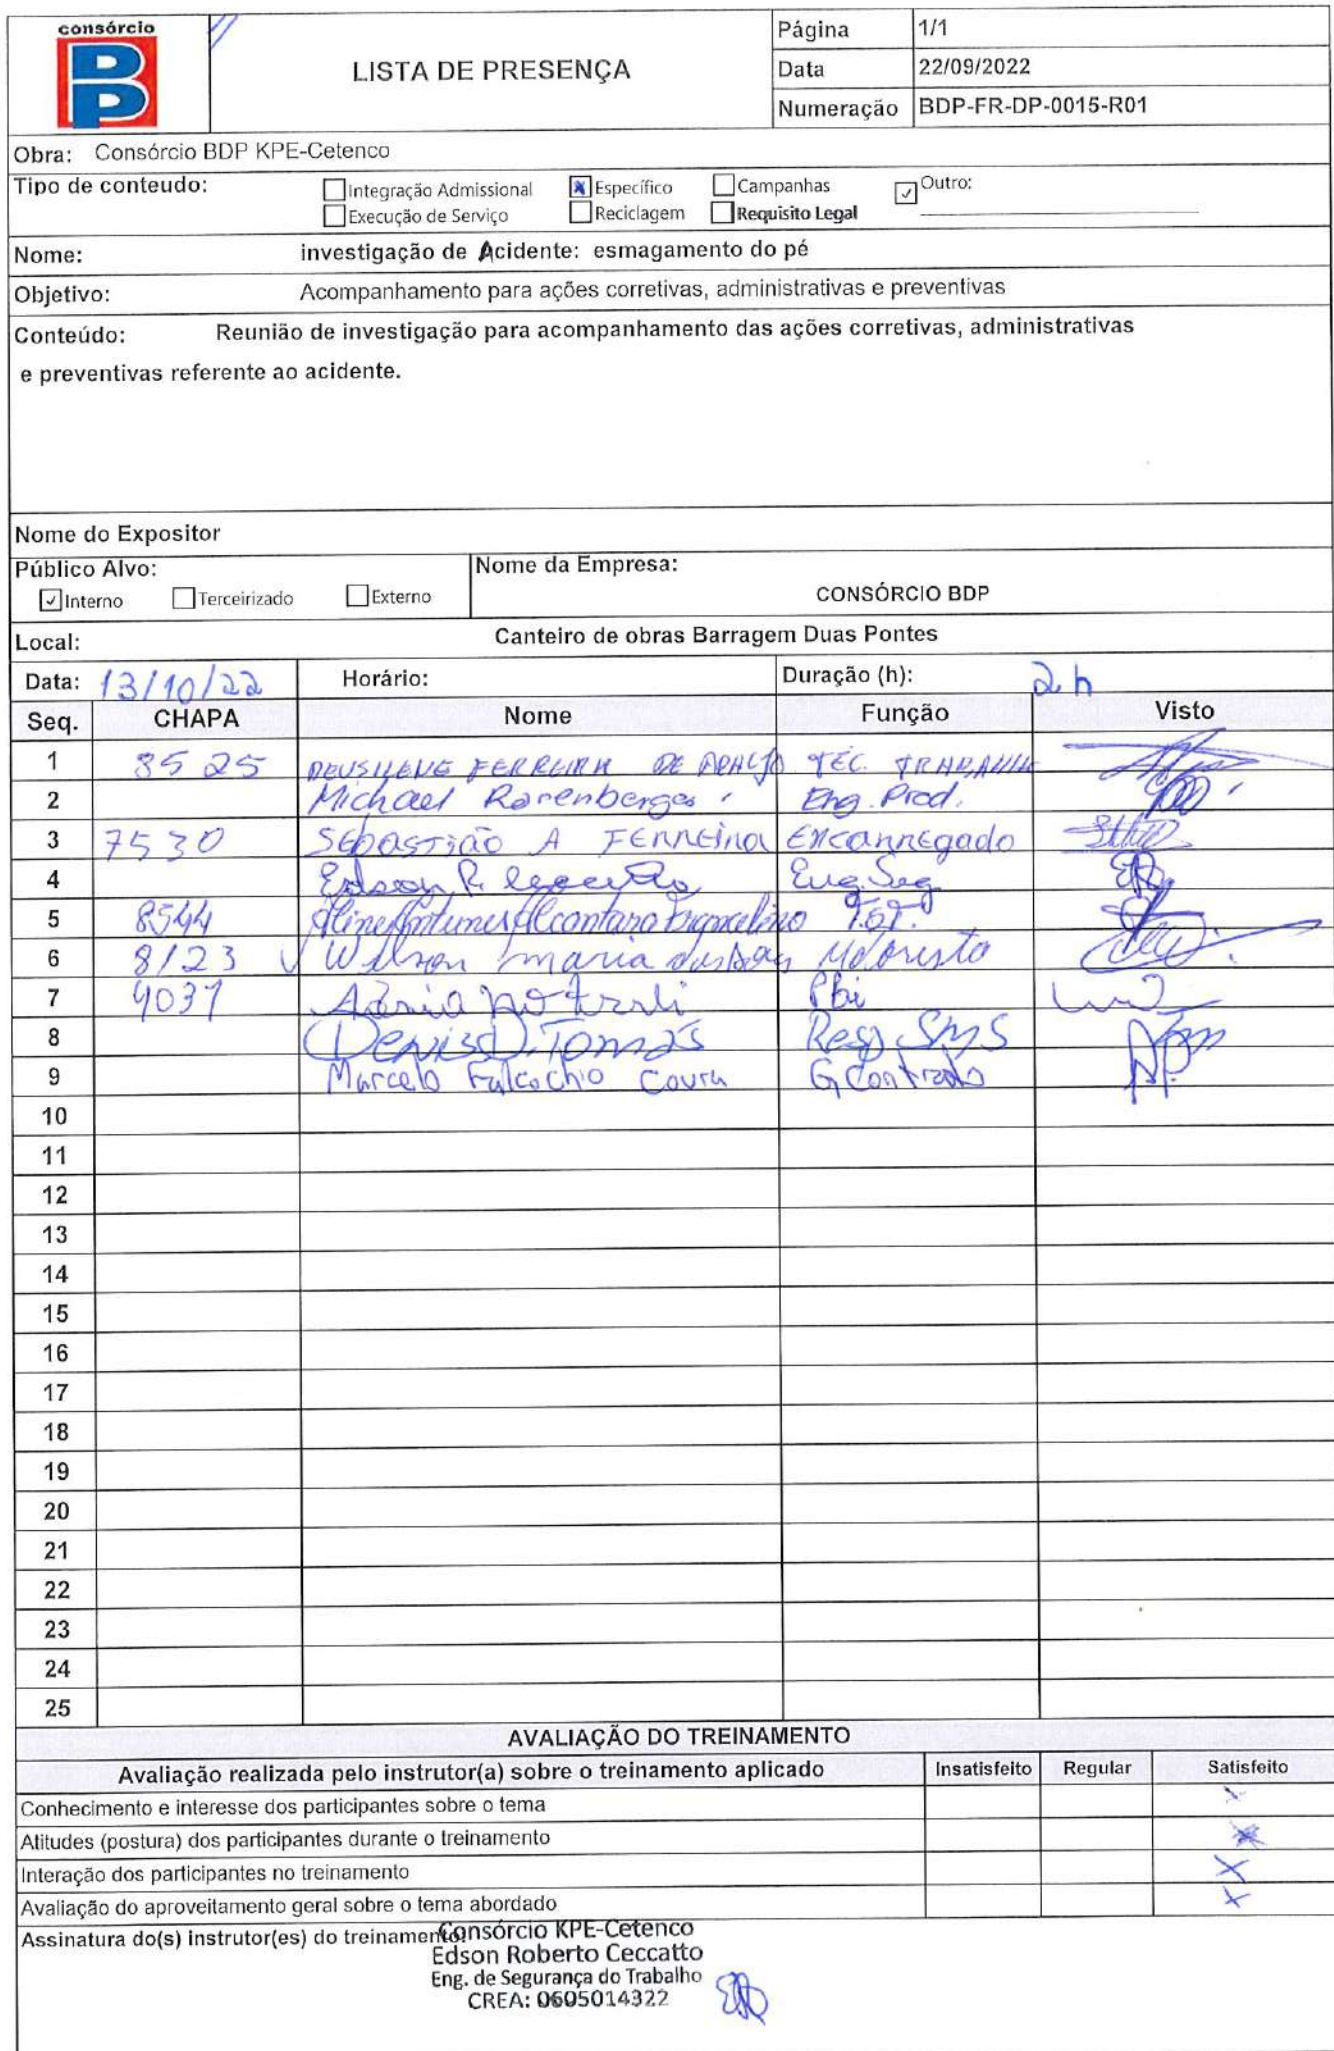 consórcio
BP
LISTA DE PRESENÇA
Página 1/1
Data 22/09/2022
Numeração BDP-FR-DP-0015-R01
Obra: Consórcio BDP KPE-Cetenco
Tipo de conteudo: Integração Admissional Específico Campanhas Outro:
Execução de Serviço Reciclagem Requisito Legal
Nome: investigação de Acidente: esmagamento do pé
Objetivo: Acompanhamento para ações corretivas, administrativas e preventivas
Conteúdo: Reunião de investigação para acompanhamento das ações corretivas, administrativas
e preventivas referente ao acidente.
Nome do Expositor
Público Alvo: Nome da Empresa:
Interno Terceirizado Externo CONSÓRCIO BDP
Local: Canteiro de obras Barragem Duas Pontes
Data: 13/10/22 Horário: Duração (h): 2h
Seq. CHAPA Nome Função Visto
1 8525 FERREIRA DE TÉC.
2 Michael Eng. Prod.
3 7530 SEbASTIÃO A FERREIRA Encarregado
4 Edson R. Eng. Seg
5 8544 Aline Antunes Alcantara T.S.T.
6 8123 Wilson maria Motorista
7 4037
8 Denise D. Tomás Resp SMS
9 Marcelo Falcochio Coura G Contrato
10
11
12
13
14
15
16
17
18
19
20
21
22
23
24
25
AVALIAÇÃO DO TREINAMENTO
Avaliação realizada pelo instrutor(a) sobre o treinamento aplicado Insatisfeito Regular Satisfeito
Conhecimento e interesse dos participantes sobre o tema X
Atitudes (postura) dos participantes durante o treinamento X
Interação dos participantes no treinamento X
Avaliação do aproveitamento geral sobre o tema abordado X
Assinatura do(s) instrutor(es) do treinamento: Consórcio KPE-Cetenco
Edson Roberto Ceccatto
Eng. de Segurança do Trabalho
CREA: 0605014322